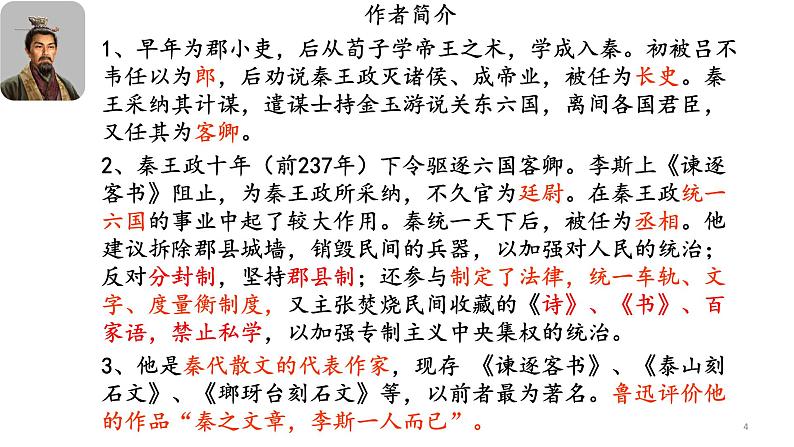 作者简介
1、早年为郡小吏，后从荀子学帝王之术，学成入秦。初被吕不
韦任以为郎，后劝说秦王政灭诸侯、成帝业，被任为长史。秦
王采纳其计谋，遣谋士持金玉游说关东六国，离间各国君臣，
又任其为客卿。
2、秦王政十年（前237年）下令驱逐六国客卿。李斯上《谏逐
客书》阻止，为秦王政所采纳，不久官为廷尉。在秦王政统一
六国的事业中起了较大作用。秦统一天下后，被任为丞相。他
建议拆除郡县城墙，销毁民间的兵器，以加强对人民的统治；
反对分封制，坚持郡县制；还参与制定了法律，统一车轨、文
字、度量衡制度，又主张焚烧民间收藏的《诗》、《书》、百
家语，禁止私学，以加强专制主义中央集权的统治。
3、他是秦代散文的代表作家，现存 《谏逐客书》、《泰山刻
石文》、《琅玡台刻石文》等，以前者最为著名。鲁迅评价他
的作品“秦之文章，李斯一人而已”。
4